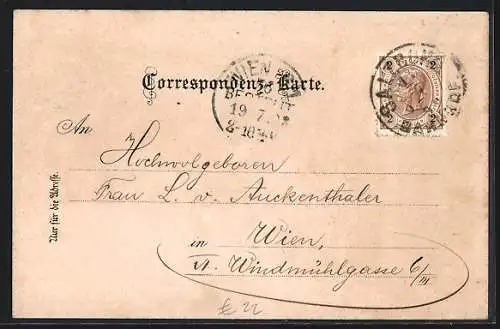 Correspondenz-Karte.
WIEN
BESTELLT
19 7
An
Hochwolgeboren
Frau L. v. Auckenthaler
in Wien,
VI. Windmühlgasse 6/III
Nur für die Adresse.
£22